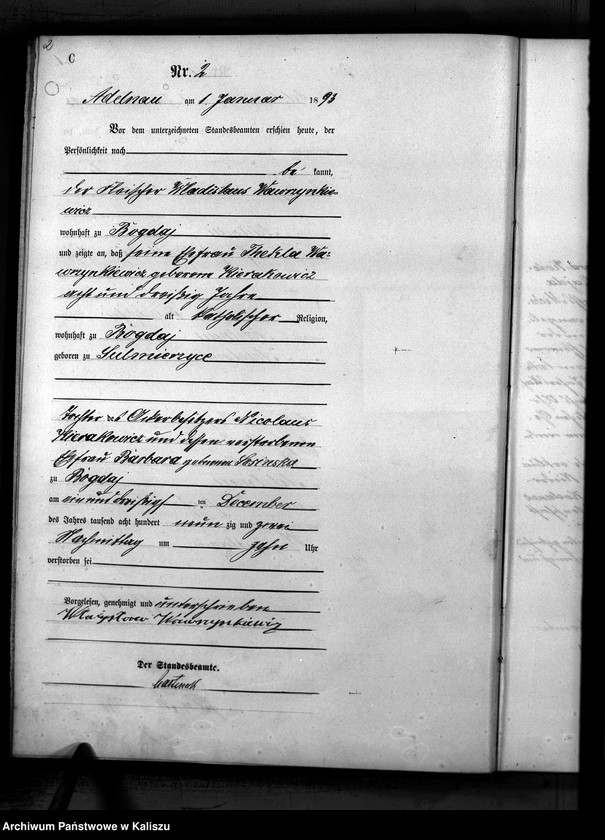 2
C
Nr. 2
Adelnau am 1. Januar 1893
Vor dem unterzeichneten Standesbeamten erschien heute, der
Persönlichkeit nach
be kannt,
der Fleischer Wladislaus Wawrzynkie-
wicz
wohnhaft zu Bogdaj
und zeigte an, daß seine Ehefrau Thekla Wa-
wrzynkiewicz geborene Kierakowicz
acht und dreißig Jahre
alt katholischer Religion,
wohnhaft zu Bogdaj
geboren zu Sulmierzyce
Tochter des Ackerbesitzers Nicolaus
Kierakowicz und dessen verstorbenen
Ehefrau Barbara geborenen
zu Bogdaj
am ein und dreißigsten December
des Jahres tausend acht hundert neun zig und zwei
Nachmittag um zehn Uhr
verstorben sei
Vorgelesen, genehmigt und unterschrieben
Der Standesbeamte.
Archiwum Państwowe w Kaliszu